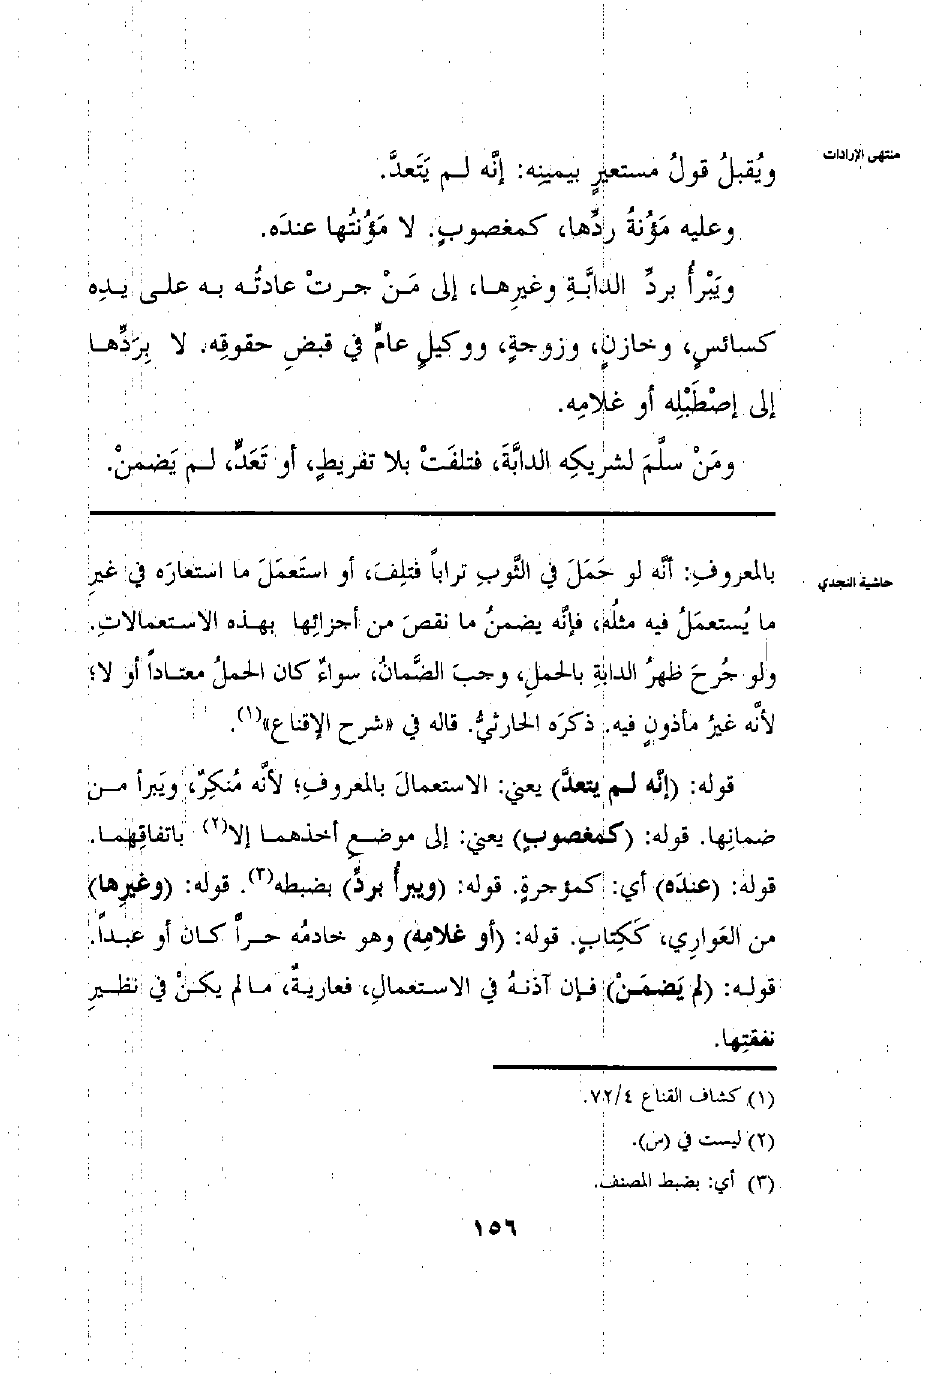 منتهى الإرادات
ويُقبلُ قولُ مستعيرٍ بيمينِه: إنَّه لـم يَتَعدَّ.
وعليه مَؤنةُ ردِّها، كمغصوبٍ. لا مَؤُنتُها عندَه.
ويَبْرأُ بردِّ الدابَّةِ وغيرِهـا، إلى مَـنْ جـرتْ عادتُـه بـه علـى يـدِه
كسائسٍ، وخازنٍ، وزوجةٍ، ووكيلٍ عامٍّ في قبضِ حقوقِه. لا بِرَدِّهـا
إلى إصْطَبْلِه أو غلامِه.
ومَنْ سلَّمَ لشريكِه الدابَّةَ، فتلفَتْ بلا تفريطٍ، أو تَعَدٍّ، لـم يَضمنْ.
حاشية النجدي
بالمعروفِ: أنَّه لو حَمَلَ في الثَّوبِ تراباً فتلِفَ، أو استَعمَلَ ما استعارَه في غيرِ
ما يُستعمَلُ فيه مثلُه، فإنَّه يضمنُ ما نقصَ من أجزائِها بهذه الاستعمالاتِ.
ولو جُرحَ ظهرُ الدابةِ بالحملِ، وجبَ الضَّمانُ، سواءٌ كان الحملُ معتـاداً أو لا؛
لأنَّه غيرُ مأذونٍ فيه. ذكرَه الحارثيُّ. قاله في «شرح الإقناع»(١).
قوله: (إنَّه لـم يتعدَّ) يعني: الاستعمالَ بالمعروفِ؛ لأنَّه مُنكِرٌ، ويَبرأ مـن
ضمانِها. قوله: (كمغصوبٍ) يعني: إلى موضـعِ أخذهمـا إلا(٢) باتفاقِهمـا.
قوله: (عندَه) أي: كمؤجرةٍ. قوله: (ويبرأُ بردِّ) بضبطه(٣). قوله: (وغيرِها)
من العَواري، كَكِتابٍ. قوله: (أو غلامِه) وهو خادمُه حـراً كـان أو عبـداً.
قولـه: (لم يَضمَـنْ) فـإن آذنـهُ في الاسـتعمالِ، فعاريـةٌ، مـا لم يكـنْ في نظـيرِ
نفقتِها.
(١) كشاف القناع ٧٢/٤.
(٢) ليست في (س).
(٣) أي: بضبط المصنف.
١٥٦